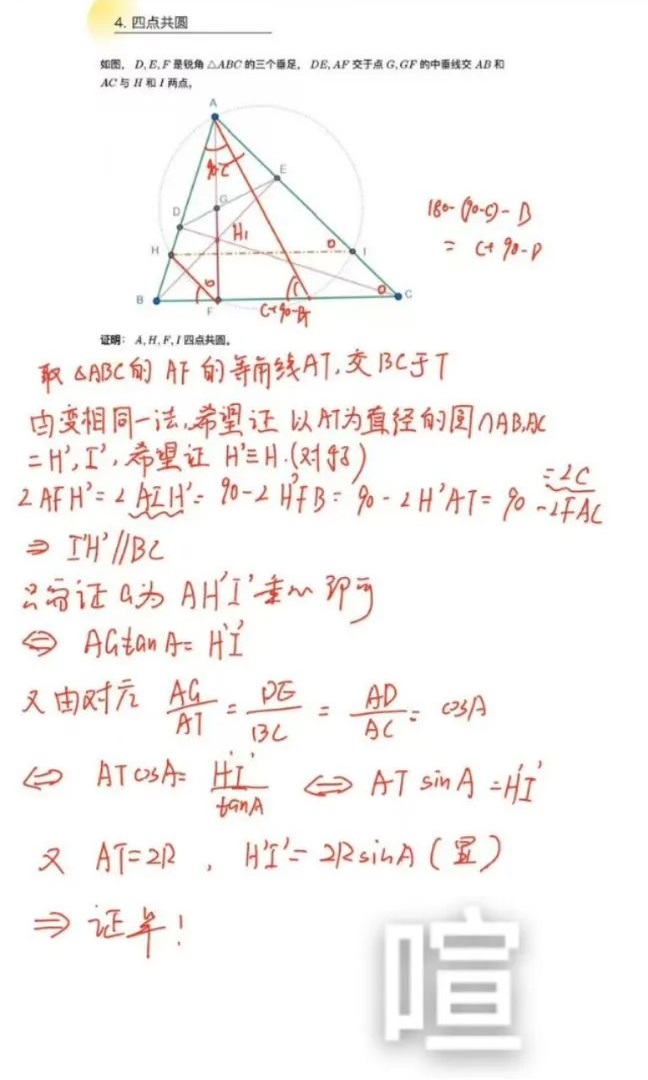 4. 四点共圆
如图，D,E,F 是锐角 △ABC 的三个垂足，DE,AF 交于点 G,GF 的中垂线交 AB 和
AC 与 H 和 I 两点，
A
90-C
E
D
G
H₁
H
I
B
F
C+90-B
C
180-(90-C)-B
= C+90-B
证明：A,H,F,I 四点共圆。
取 △ABC 的 AF 的等角线AT,交BC于T
由变相同一法,希望证 以AT为直径的圆∩AB,AC
=H',I',希望证 H'≡H.(对好)
∠AFH'=∠AIH'=90-∠H'FB=90-∠H'AT=90-∠FAC
=∠C
⇒ I'H'//BC
只需证 G为 AH'I' 垂心 即可
⇔ AGtanA=H'I'
又由对应 AG/AT = DE/BC = AD/AC = cosA
⇔ ATcosA= H'I'/tanA ⇔ AT sinA =H'I'
又 AT=2R , H'I'=2RsinA (显)
⇒ 证毕!
喧